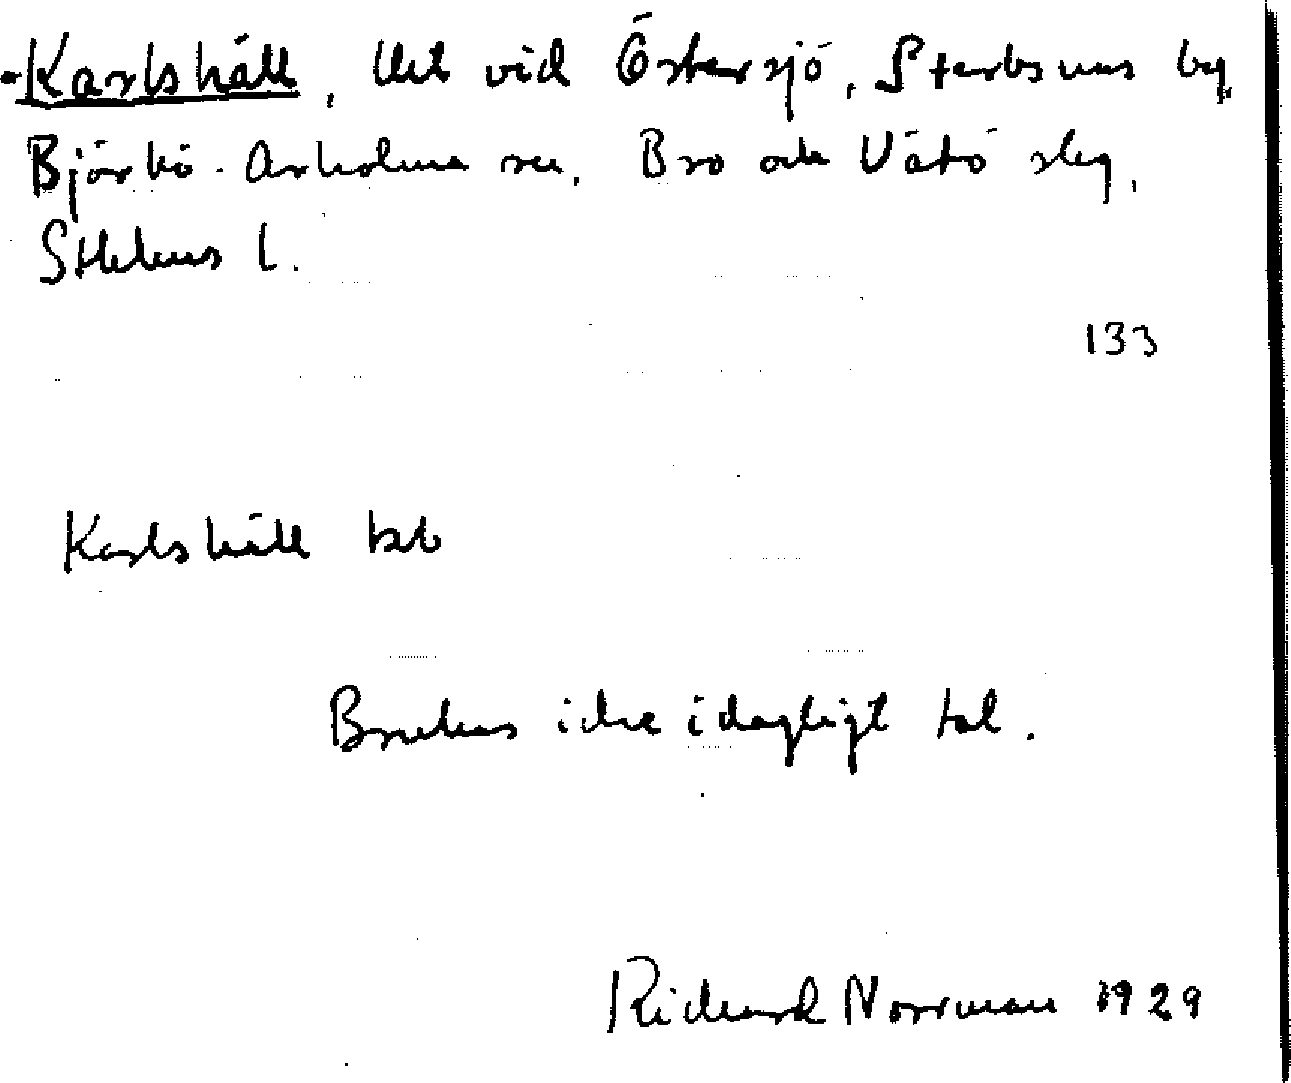 Karlshäll, lht vid Östersjö, Starbsnas by,
Björkö-Arholma sn, Bro och Vätö skg,
Sthlms l.
133
Karlshäll
Brukas icke i dagligt tal.
Richard Norrman 1929